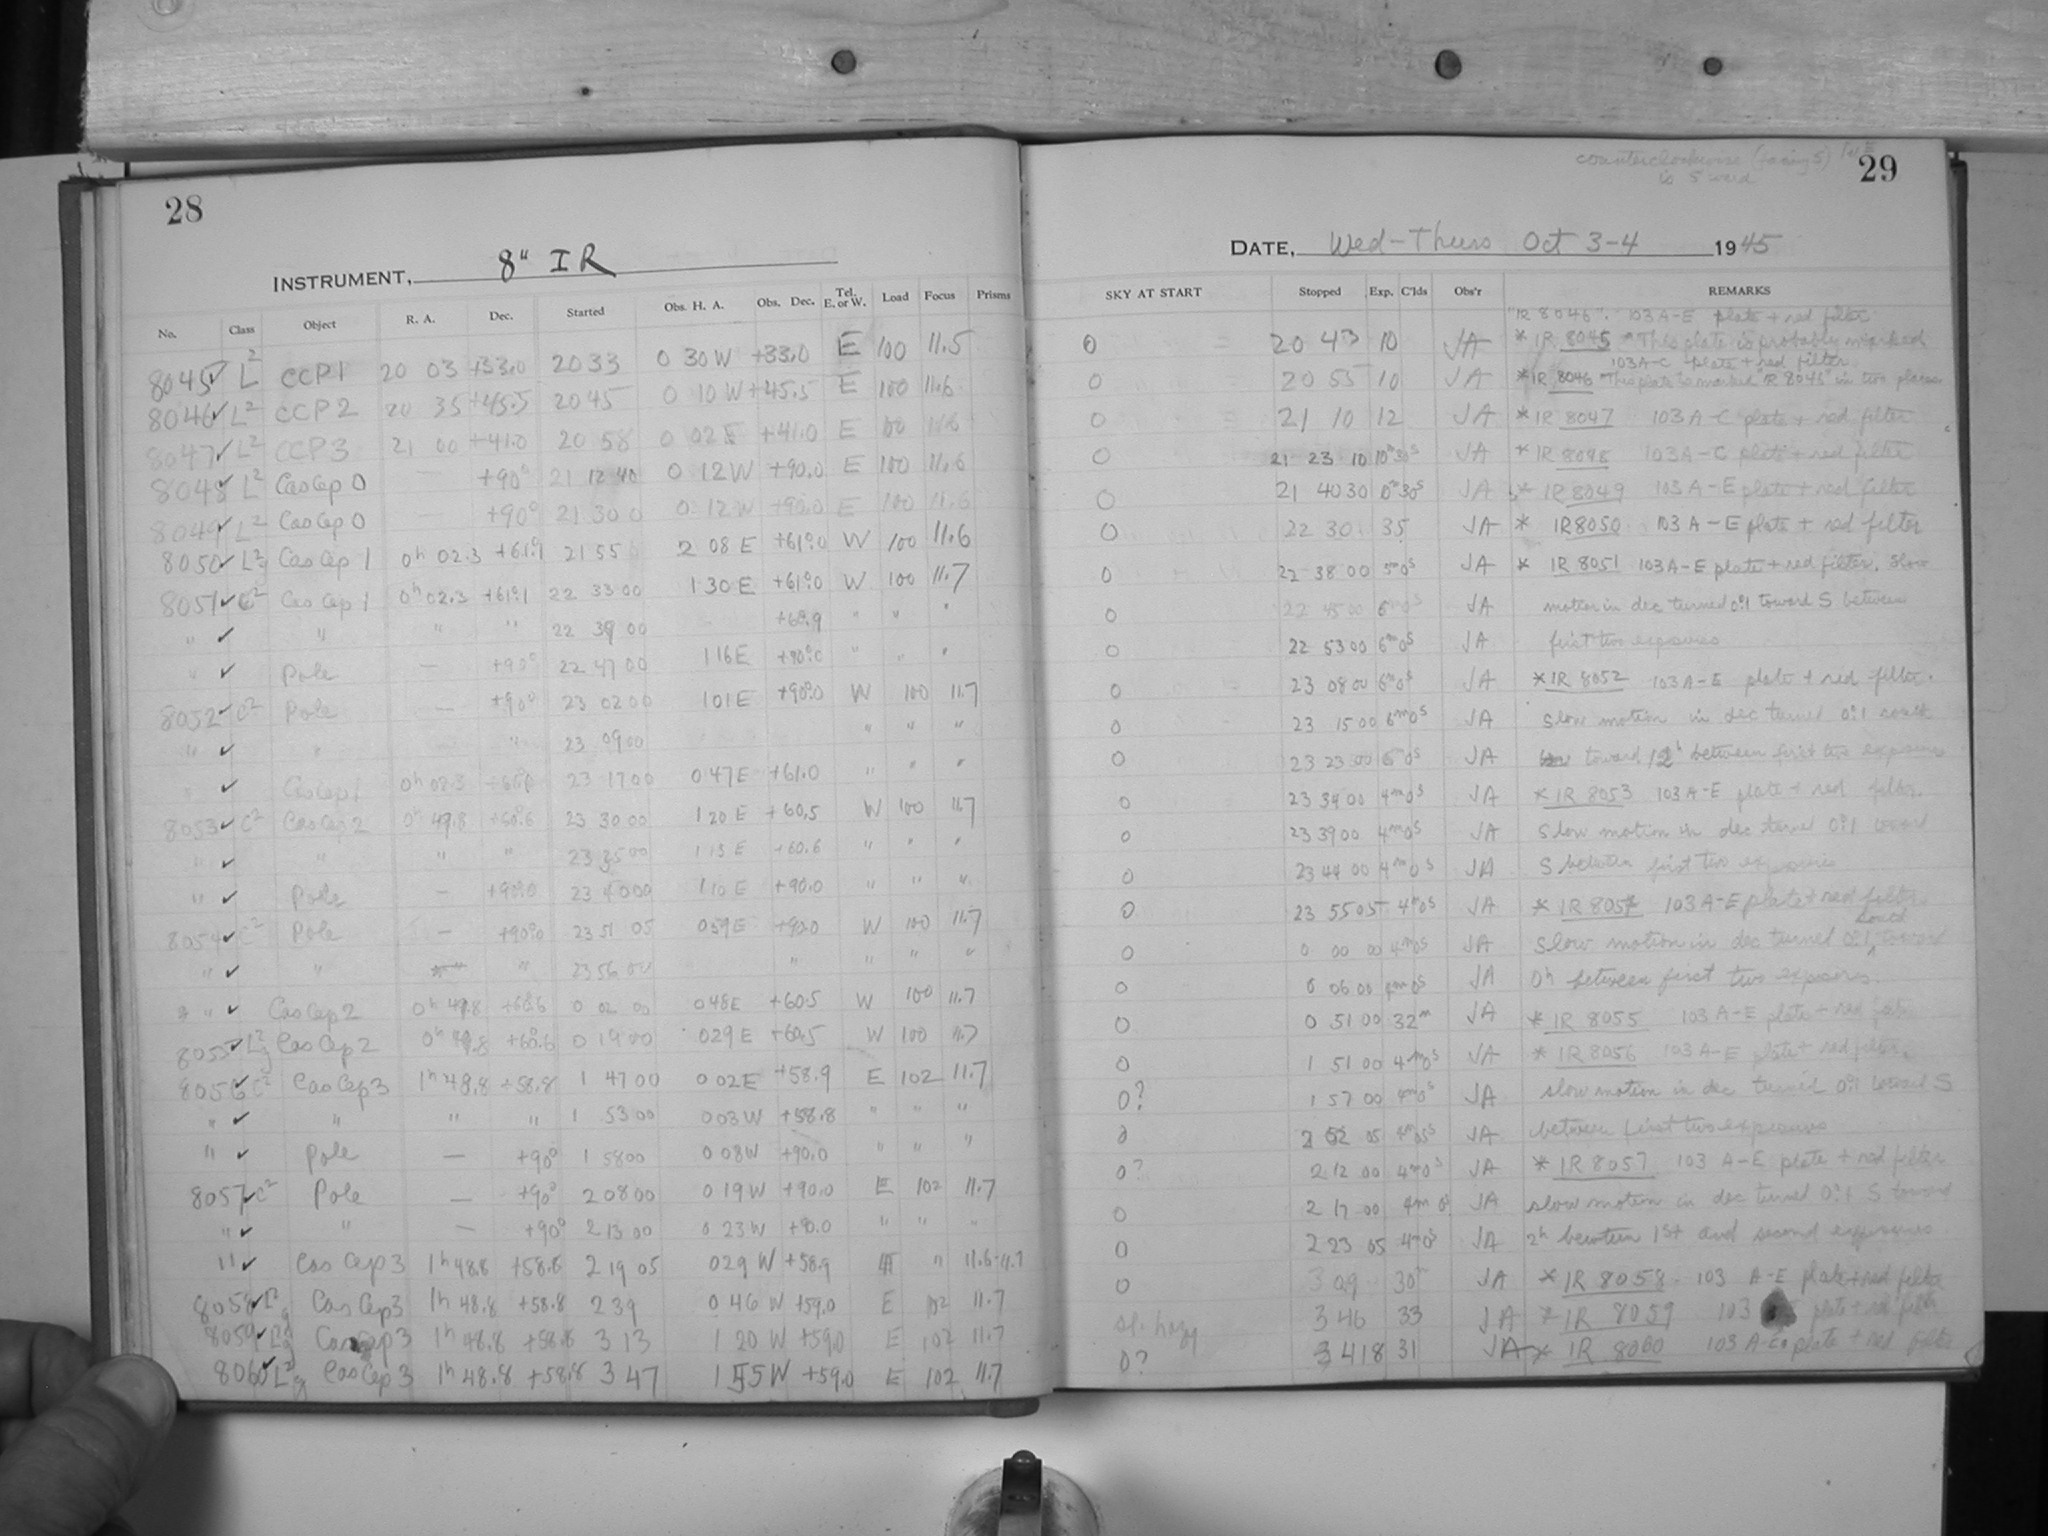 28
INSTRUMENT, 8" IR
No. Class Object R. A. Dec. Started Obs. H. A. Obs. Dec. Tel. E. or W. Load Focus Prisms
8045 L² CCP1 20 03 +33.0 20 33 0 30 W +33.0 E 100 11.5
8046 L² CCP2 20 35 +45.5 20 45 0 10 W +45.5 E 100 11.6
8047 L² CCP3 21 00 +41.0 20 58 0 02 E +41.0 E 100 11.6
8048 L² CasCep 0 — +90° 21 12 40 0 12 W +90.0 E 100 11.6
8049 L² CasCep 0 — +90° 21 30 0 0 12 W +90.0 E 100 11.6
8050 L² CasCep 1 0ʰ 02.3 +61.1 21 55 2 08 E +61.0 W 100 11.6
8051 C² CasCep 1 0ʰ 02.3 +61.1 22 33 00 1 30 E +61.0 W 100 11.7
" " " " 22 39 00 +60.9 " " "
" Pole — +90° 22 47 00 1 16 E +90.0 " " "
8052 C² Pole — +90° 23 02 00 1 01 E +90.0 W 100 11.7
" " " 23 09 00 " " "
" CasCep 1 0ʰ 02.3 23 17 00 0 47 E +61.0 " " "
8053 C² CasCep 2 0ʰ 49.8 +60.6 23 30 00 1 20 E +60.5 W 100 11.7
" " " " 23 35 00 1 13 E +60.6 " " "
" Pole — +90.0 23 40 00 1 10 E +90.0 " " "
8054 C² Pole — +90.0 23 51 05 0 59 E +90.0 W 100 11.7
" " " 23 56 00 " " " "
" CasCep 2 0ʰ 49.8 +60.6 0 02 00 0 48 E +60.5 W 100 11.7
8055 L² CasCep 2 0ʰ 49.8 +60.6 0 19 00 0 29 E +60.5 W 100 11.7
8056 C² CasCep 3 1ʰ 48.8 +58.8 1 47 00 0 02 E +58.9 E 102 11.7
" " " " 1 53 00 0 03 W +58.8 " " "
" Pole — +90° 1 58 00 0 08 W +90.0 " " "
8057 C² Pole — +90° 2 08 00 0 19 W +90.0 E 102 11.7
" " — +90° 2 13 00 0 23 W +90.0 " " "
" CasCep 3 1ʰ 48.8 +58.8 2 19 05 0 29 W +58.9 " 11.6-11.7
8058 L² CasCep 3 1ʰ 48.8 +58.8 2 39 0 46 W +59.0 E 102 11.7
8059 L² CasCep 3 1ʰ 48.8 +58.8 3 13 1 20 W +59.0 E 102 11.7
8060 L² CasCep 3 1ʰ 48.8 +58.8 3 47 1 55 W +59.0 E 102 11.7
counterclockwise (facing S)
is S ward
29
DATE, Wed-Thurs Oct 3-4 1945
SKY AT START Stopped Exp. C'lds Obs'r REMARKS
"IR 8046". 103A-E plate + red filter
0 20 43 10 JA * IR 8045 This plate is probably marked
103A-C plate + red filter
0 20 55 10 JA * IR 8046 This plate is marked "IR 8045" in two places
0 21 10 12 JA * IR 8047 103A-C plate + red filter
0 21 23 10 10ᵐ30ˢ JA * IR 8048 103A-C plate + red filter
0 21 40 30 10ᵐ30ˢ JA * IR 8049 103A-E plate + red filter
0 22 30 35 JA * IR 8050 103A-E plate + red filter
0 22 38 00 5ᵐ0ˢ JA * IR 8051 103A-E plate + red filter. Slow
0 22 45 00 6ᵐ0ˢ JA motion in dec turned 0.1 toward S between
0 22 53 00 6ᵐ0ˢ JA first two exposures
0 23 08 00 6ᵐ0ˢ JA * IR 8052 103A-E plate + red filter.
0 23 15 00 6ᵐ0ˢ JA slow motion in dec turned 0.1
0 23 23 00 6ᵐ0ˢ JA toward 12ʰ between first two exposures
0 23 34 00 4ᵐ0ˢ JA * IR 8053 103A-E plate + red filter.
0 23 39 00 4ᵐ0ˢ JA Slow motion in dec turned 0.1 toward
0 23 44 00 4ᵐ0ˢ JA S between first two exposures
0 23 55 05 4ᵐ0ˢ JA * IR 8054 103A-E plate + red filter
0 0 00 00 4ᵐ0ˢ JA Slow motion in dec turned 0.1 toward
0 0 06 00 4ᵐ0ˢ JA 0ʰ between first two exposures.
0 0 51 00 32ᵐ JA * IR 8055 103A-E plate + red
0 1 51 00 4ᵐ0ˢ JA * IR 8056 103A-E plate + red filter.
0? 1 57 00 4ᵐ0ˢ JA slow motion in dec turned 0.1 toward S
0 2 02 05 4ᵐ05ˢ JA between first two exposures
0? 2 12 00 4ᵐ0ˢ JA * IR 8057 103 A-E plate + red filter
0 2 17 00 4ᵐ0 JA slow motion in dec turned 0.1 S toward
0 2 23 05 4ᵐ0ˢ JA 2ʰ between 1st and second exposures
0 3 09 30 JA * IR 8058 103 A-E plate + red filter
sl. hazy 3 46 33 JA * IR 8059 103 plate + red filter
0? 4 18 31 JA * IR 8060 103 A-E plate + red filter